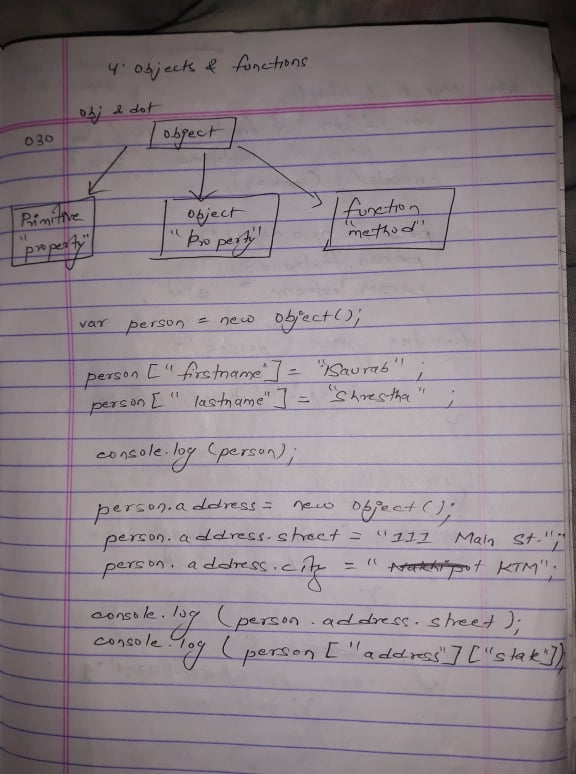 4: Objects & functions
obj & dot
030
object
Primitive
"property"
object
"Property"
function
"method"
var person = new object();
person ["firstname"] = "Saurab" ;
person [" lastname"] = "Shrestha" ;
console.log (person);
person.address = new object ();
person. address. street = "111 Main St.";
person. address.city = " KTM";
console. log (person . address. street );
console. log (person ["address"] ["state"])